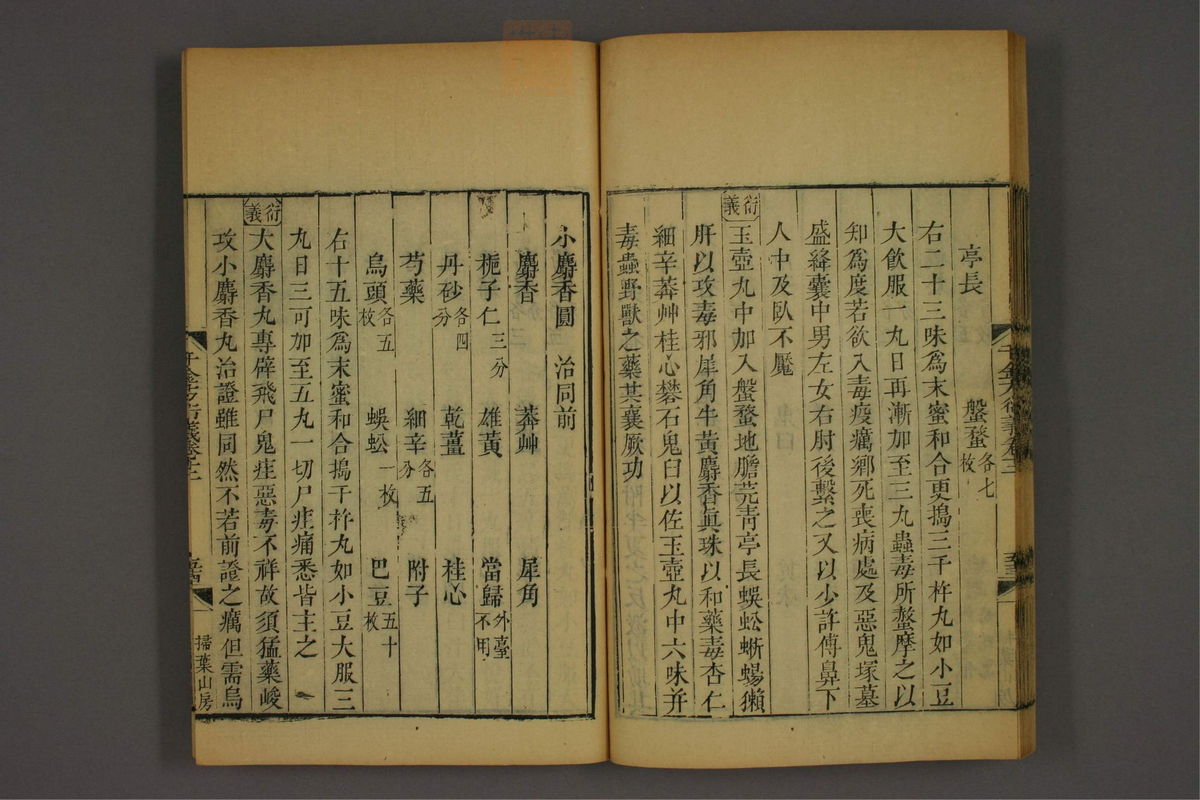 亭長　盤蝥各七枚
右二十三味爲末蜜和合更搗三千杵丸如小豆
大飲服一丸日再漸加至三丸蟲毒所螫摩之以
知爲度若欲入毒疫癘鄉死喪病處及惡鬼塚墓
盛絳囊中男左女右肘後繫之又以少許傅鼻下
人中及臥不魘
衍義
玉壺丸中加入盤蝥地膽芫青亭長蜈蚣蜥蜴獺
肝以攻毒邪犀角牛黃麝香眞珠以和藥毒杏仁
細辛莽艸桂心礬石鬼臼以佐玉壺丸中六味并
毒蟲野獸之藥其襄厥功
小麝香圓　治同前
麝香　莽艸　犀角
梔子仁三分　雄黃　當歸外臺不用
丹砂各四分　乾薑　桂心
芍藥　細辛各五分　附子
烏頭各五枚　蜈蚣一枚　巴豆五十枚
右十五味爲末蜜和合搗千杵丸如小豆大服三
丸日三可加至五丸一切尸疰痛悉皆主之
衍義
大麝香丸專辟飛尸鬼疰惡毒不祥故須猛藥峻
攻小麝香丸治證雖同然不若前證之癘但需烏
千金方衍義卷十二
掃葉山房